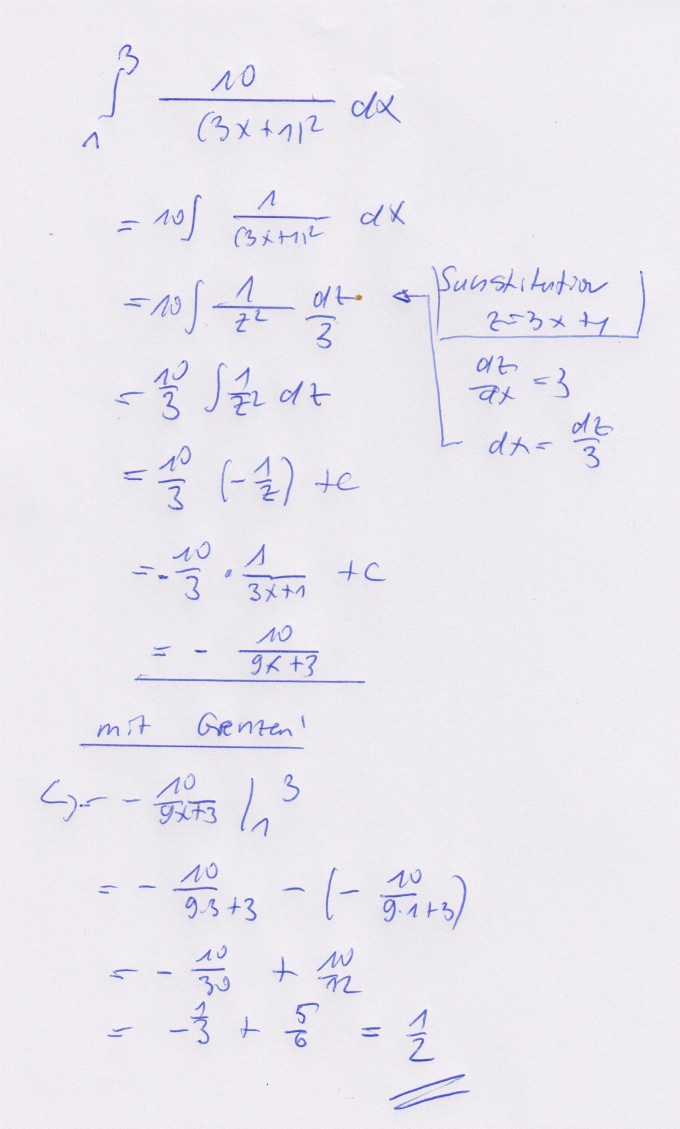 ∫₁³ 10/(3x+1)² dx
= 10 ∫ 1/(3x+1)² dx
= 10 ∫ 1/z² dz/3
Substitution
z=3x+1
dz/dx = 3
dx = dz/3
= 10/3 ∫ 1/z² dz
= 10/3 (-1/z) + c
= - 10/3 · 1/(3x+1) + c
= - 10/(9x+3)
mit Grenzen!
↪ = - 10/(9x+3) |₁³
= - 10/(9·3+3) - (- 10/(9·1+3))
= - 10/30 + 10/12
= - 1/3 + 5/6 = 1/2